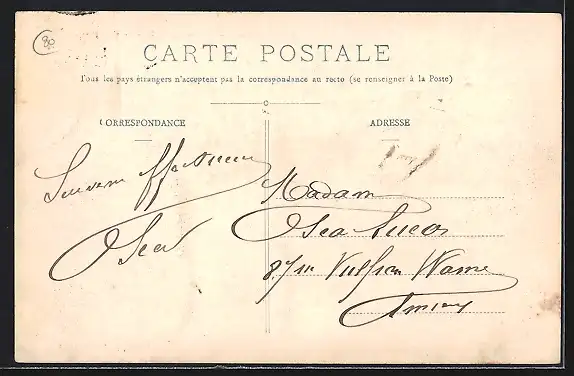 80
CARTE POSTALE
Tous les pays étrangers n'acceptent pas la correspondance au recto (se renseigner à la Poste)
CORRESPONDANCE
ADRESSE
Souvenir affectueux
Oscar
Madame
Oscar Lucas
Vulfran Warne
Amiens